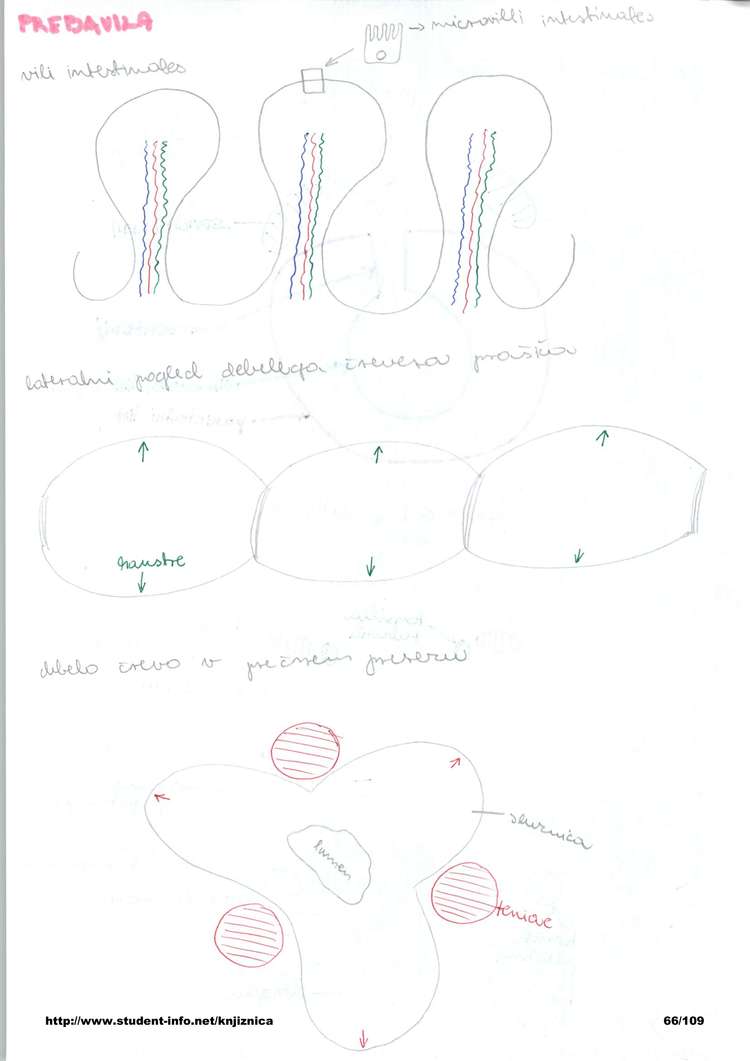 PREBAVILA
→ microvilli intestinales
vili intestinales
lateralni pogled debelega črevesa prašiča
haustre
debelo črevo v prečnem prerezu
lumen
sluznica
teniae
http://www.student-info.net/knjiznica
66/109